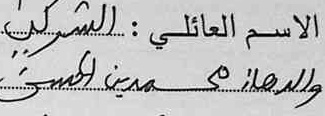 الاسم العائلي : الشركي
والدها: محمد بن الحسن